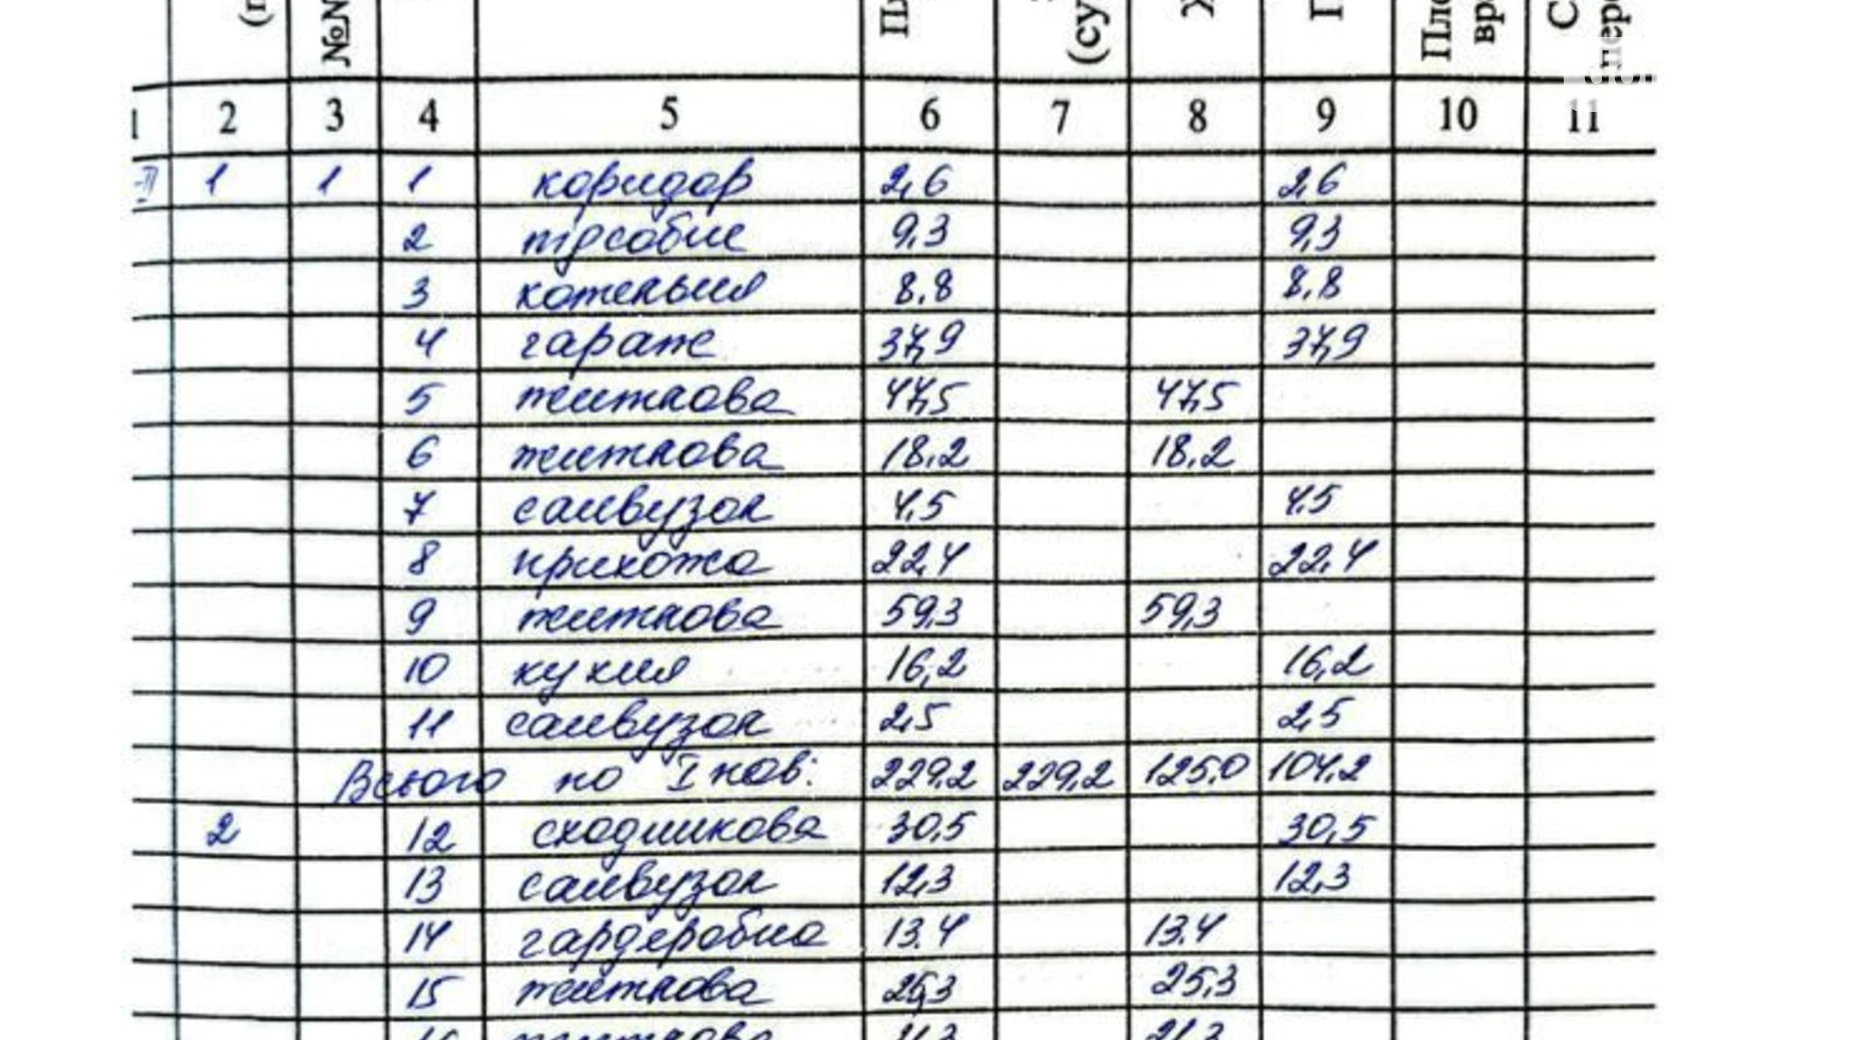 №№
(су
Пло
вр
С
пер
1 2 3 4 5 6 7 8 9 10 11
1 1 1 коридор 2,6 2,6
2 підсобне 9,3 9,3
3 котельня 8,8 8,8
4 гараж 37,9 37,9
5 житлова 47,5 47,5
6 житлова 18,2 18,2
7 санвузол 4,5 4,5
8 прихожа 22,4 22,4
9 житлова 59,3 59,3
10 кухня 16,2 16,2
11 санвузол 2,5 2,5
Всього по I пов: 229,2 229,2 125,0 104,2
2 12 сходинкова 30,5 30,5
13 санвузол 12,3 12,3
14 гардеробна 13.4 13.4
15 житлова 25,3 25,3
житлова 21,3